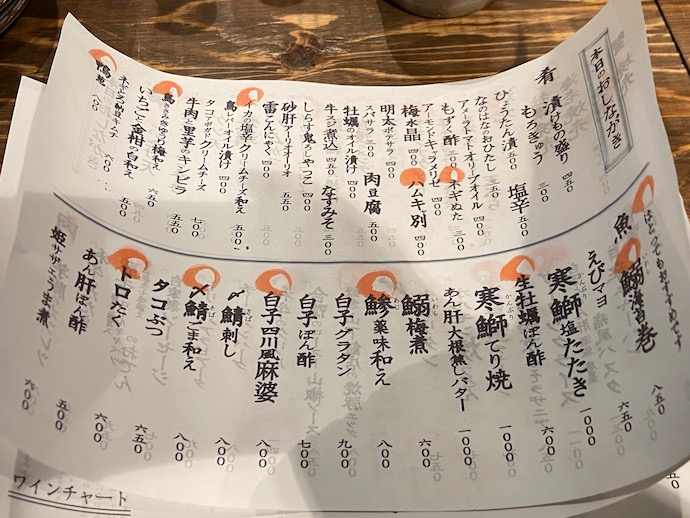 本日のおしながき
肴
漬けもの盛り 四五〇
もろきゅう 三〇〇
ひょうたん漬 三〇〇
塩辛 五〇〇
なのはなのおひたし 三五〇
アメーラトマトオリーブオイル 四〇〇
もずく酢 三〇〇
ネギぬた 四〇〇
アーモンドキャラメリゼ 四〇〇
梅水晶 四〇〇
ハムキ別 四〇〇
明太ポテサラ 四〇〇
スパサラ 三〇〇
肉豆腐 五五〇
牡蠣のオイル漬け 四〇〇
牛スジ煮込 四五〇
なすみそ 三〇〇
しらす鬼おろしやっこ
砂肝アーリオオーリオ 五五〇
雷こんにゃく 四〇〇
イカの塩辛クリームチーズ和え
鳥レバーオイル漬け 四〇〇
タコブツガリクリームチーズ
牛肉と里芋のキンピラ 五五〇
鳥ささみきゅうり梅和え
いちごと金柑の白和え 六五〇
鴨葱 八〇〇
魚
はどってもおすすめです
鰯海苔巻 八五〇
えびマヨ 六五〇
寒鰤塩たたき 一〇〇〇
生牡蠣ぽん酢 六〇〇
寒鰤てり焼 一〇〇〇
あん肝大根蒸しバター 一〇〇〇
鰯梅煮 六〇〇
鯵薬味和え 八〇〇
白子グラタン 九〇〇
白子ぽん酢 七〇〇
白子四川風麻婆 八〇〇
〆鯖刺し 八〇〇
〆鯖ごま和え 八〇〇
タコぶつ 七〇〇
トロたく 六五〇
あん肝ぽん酢 五〇〇
姫サザエうま煮 六〇〇
ワインチャート